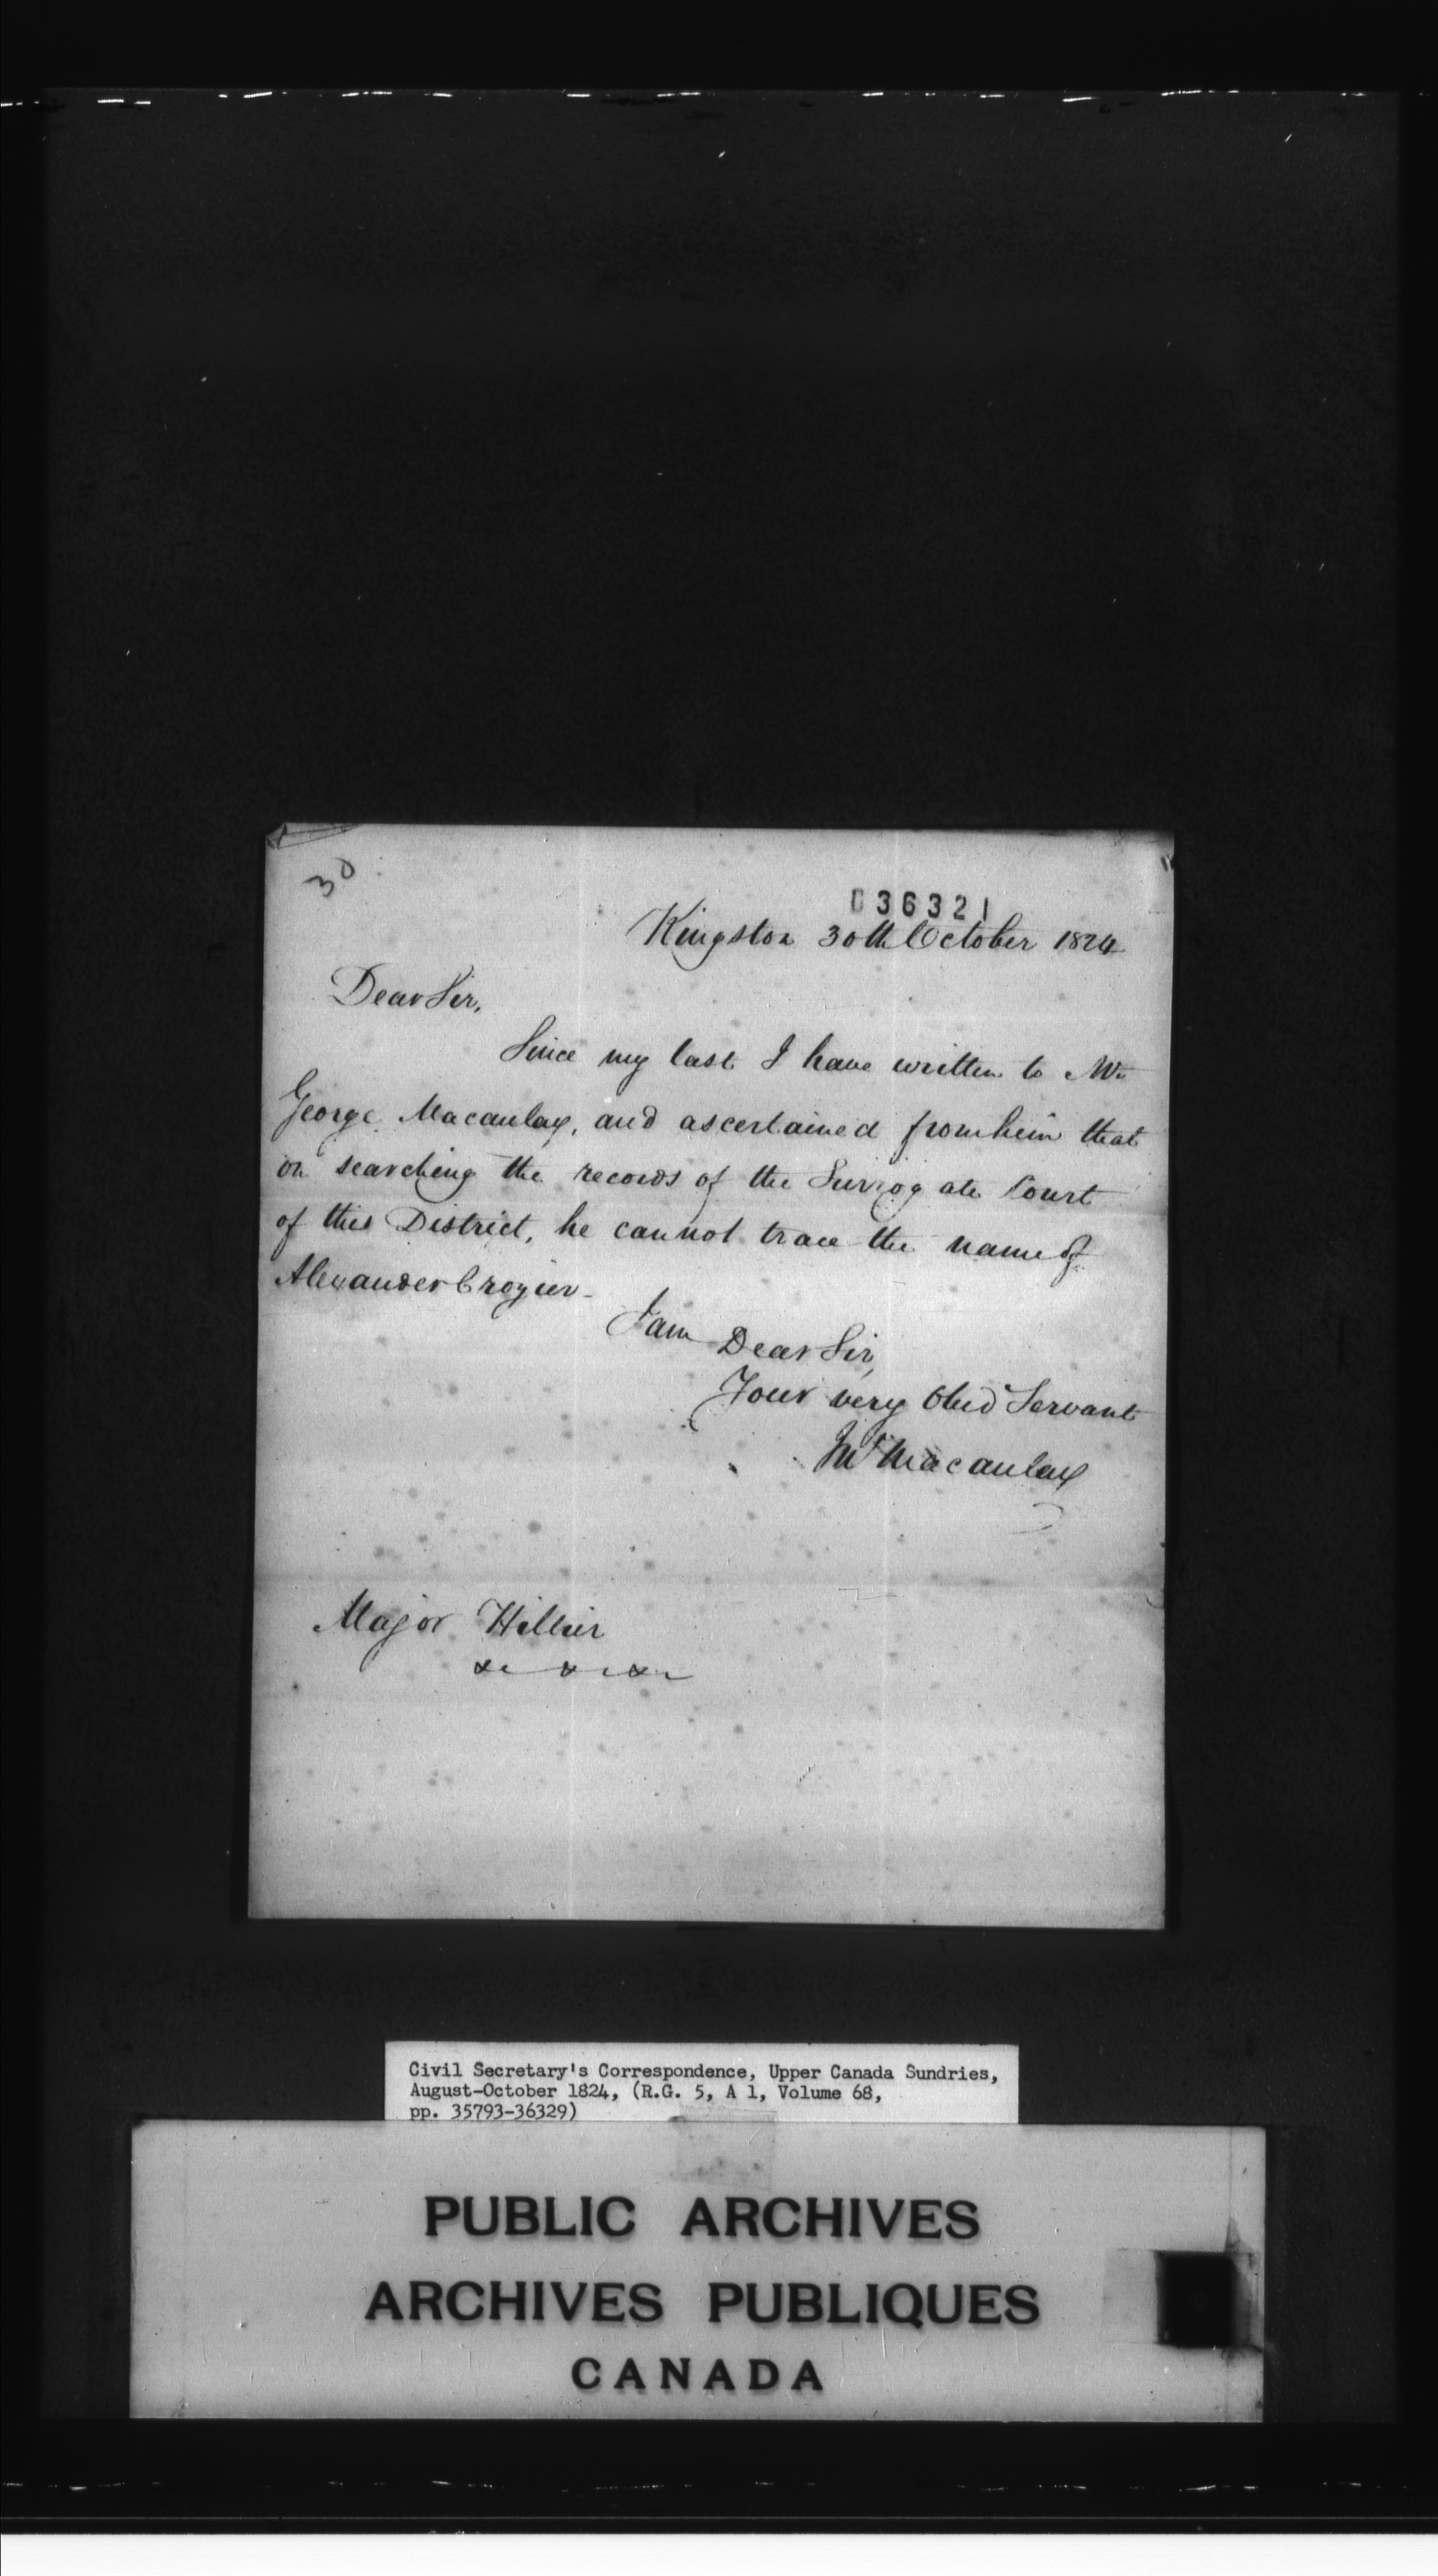 30
036321
Kingston 30th October 1824
Dear Sir,
Since my last I have written to Mr
George Macaulay, and ascertained from him that
on searching the records of the Surrogate Court
of this District, he cannot trace the name of
Alexander Crozier –
I am Dear Sir,
Your very Obed Servant
Jno Macaulay
Major Hillier
&c &c &c
Civil Secretary's Correspondence, Upper Canada Sundries,
August-October 1824, (R.G. 5, A 1, Volume 68,
pp. 35793-36329)
PUBLIC ARCHIVES
ARCHIVES PUBLIQUES
CANADA